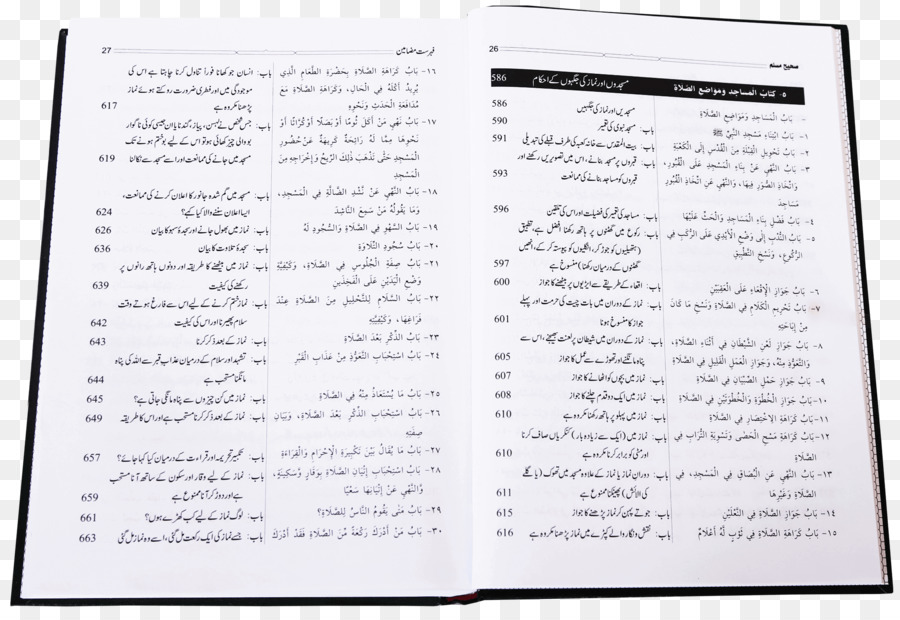 26
صحیح مسلم
٥- كتاب المساجد ومواضع الصلاة
مسجدوں اور نماز کی جگہوں کے احکام 586
- بَابُ الْمَسَاجِدِ وَمَوَاضِعِ الصَّلَاةِ
باب: مسجدیں اور نماز کی جگہیں 586
١- بَابُ ابْتِنَاءِ مَسْجِدِ النَّبِيِّ ﷺ
باب: مسجد نبوی کی تعمیر 590
٢- بَابُ تَحْوِيلِ الْقِبْلَةِ مِنَ الْقُدْسِ إِلَى الْكَعْبَةِ
باب: بیت المقدس سے خانہ کعبہ کی طرف قبلے کی تبدیلی 591
٣- بَابُ النَّهْيِ عَنْ بِنَاءِ الْمَسَاجِدِ عَلَى الْقُبُورِ،
وَاتِّخَاذِ الصُّوَرِ فِيهَا، وَالنَّهْيِ عَنِ اتِّخَاذِ الْقُبُورِ
مَسَاجِدَ
باب: قبروں پر مسجد بنانے، اس میں تصویریں رکھنے اور
قبروں کو مساجد بنانے کی ممانعت 593
٤- بَابُ فَضْلِ بِنَاءِ الْمَسَاجِدِ وَالْحَثِّ عَلَيْهَا
باب: مساجد کی تعمیر کی فضیلت اور اس کی تلقین 596
٥- بَابُ النَّدْبِ إِلَى وَضْعِ الْأَيْدِي عَلَى الرُّكَبِ فِي
الرُّكُوعِ، وَنَسْخِ التَّطْبِيقِ
باب: رکوع میں گھٹنوں پر ہاتھ رکھنا افضل ہے، تطبیق
(ہتھیلیوں کو جوڑ کر، انگلیوں کو پیوستہ کر کے، انھیں
گھٹنوں کے درمیان رکھنا) منسوخ ہے 597
٦- بَابُ جَوَازِ الْإِقْعَاءِ عَلَى الْعَقِبَيْنِ
باب: اقعاء کے طریقے سے ایڑیوں پر بیٹھنے کا جواز 600
٧- بَابُ تَحْرِيمِ الْكَلَامِ فِي الصَّلَاةِ وَنَسْخِ مَا كَانَ
مِنْ إِبَاحَتِهِ
باب: نماز کے دوران میں بات چیت کی حرمت اور پہلے
جواز کا منسوخ ہونا 601
٨- بَابُ جَوَازِ لَعْنِ الشَّيْطَانِ فِي أَثْنَاءِ الصَّلَاةِ
وَالتَّعَوُّذِ مِنْهُ، وَجَوَازِ الْعَمَلِ الْقَلِيلِ فِي الصَّلَاةِ
باب: نماز کے دوران میں شیطان پر لعنت بھیجنے، اس سے
پناہ مانگنے اور تھوڑے سے عمل کا جواز 605
٩- بَابُ جَوَازِ حَمْلِ الصِّبْيَانِ فِي الصَّلَاةِ
باب: نماز میں بچوں کو اٹھانے کا جواز 607
١٠- بَابُ جَوَازِ الْخُطْوَةِ وَالْخُطْوَتَيْنِ فِي الصَّلَاةِ
باب: نماز میں ایک دو قدم چلنے کا جواز 608
١١- بَابُ كَرَاهَةِ الِاخْتِصَارِ فِي الصَّلَاةِ
باب: نماز میں پہلو پر ہاتھ رکھنا مکروہ ہے 610
١٢- بَابُ كَرَاهَةِ مَسْحِ الْحَصَى وَتَسْوِيَةِ التُّرَابِ فِي
الصَّلَاةِ
باب: نماز میں (ایک سے زیادہ بار) کنکریاں صاف کرنا
اور مٹی کو برابر کرنا مکروہ ہے 610
١٣- بَابُ النَّهْيِ عَنِ الْبُصَاقِ فِي الْمَسْجِدِ، فِي
الصَّلَاةِ وَغَيْرِهَا
باب: دوران نماز یا نماز کے علاوہ مسجد میں تھوک (یا گلے
کی آلائش) پھینکنا ممنوع ہے 611
١٤- بَابُ جَوَازِ الصَّلَاةِ فِي النَّعْلَيْنِ
باب: جوتے پہن کر نماز پڑھنے کا جواز 615
١٥- بَابُ كَرَاهَةِ الصَّلَاةِ فِي ثَوْبٍ لَهُ أَعْلَامٌ
باب: نقش و نگار والے کپڑے میں نماز پڑھنا مکروہ ہے 616
فہرست مضامین
27
١٦- بَابُ كَرَاهَةِ الصَّلَاةِ بِحَضْرَةِ الطَّعَامِ الَّذِي
يُرِيدُ أَكْلَهُ فِي الْحَالِ، وَكَرَاهَةِ الصَّلَاةِ مَعَ
مُدَافَعَةِ الْحَدَثِ وَنَحْوِهِ
باب: انسان جو کھانا فوراً تناول کرنا چاہتا ہے اس کی
موجودگی میں اور فطری ضرورت روکتے ہوئے نماز
پڑھنا مکروہ ہے 617
١٧- بَابُ نَهْيِ مَنْ أَكَلَ ثُومًا أَوْ بَصَلًا أَوْ كُرَّاثًا أَوْ
نَحْوَهَا مِمَّا لَهُ رَائِحَةٌ كَرِيهَةٌ عَنْ حُضُورِ
الْمَسْجِدِ حَتَّى تَذْهَبَ ذٰلِكَ الرِّيحُ وَإِخْرَاجِهِ مِنَ
الْمَسْجِدِ
باب: جس شخص نے لہسن، پیاز، گندنا یا ان جیسی کوئی ناگوار
بو والی چیز کھائی ہو تو اس کے لیے بو ختم ہونے تک
مسجد میں جانے کی ممانعت اور اسے مسجد سے نکالنا 619
١٨- بَابُ النَّهْيِ عَنْ نَشْدِ الضَّالَّةِ فِي الْمَسْجِدِ،
وَمَا يَقُولُهُ مَنْ سَمِعَ النَّاشِدَ
باب: مسجد میں گم شدہ جانور کا اعلان کرنے کی ممانعت،
ایسا اعلان سننے والا کیا کہے؟ 624
١٩- بَابُ السَّهْوِ فِي الصَّلَاةِ وَالسُّجُودِ لَهُ
باب: نماز میں بھول جانے اور سجدۂ سہو کا بیان 626
٢٠- بَابُ سُجُودِ التِّلَاوَةِ
باب: سجدۂ تلاوت کا بیان 636
٢١- بَابُ صِفَةِ الْجُلُوسِ فِي الصَّلَاةِ، وَكَيْفِيَّةِ
وَضْعِ الْيَدَيْنِ عَلَى الْفَخِذَيْنِ
باب: نماز میں بیٹھنے کا طریقہ اور دونوں ہاتھ رانوں پر
رکھنے کی کیفیت 639
٢٢- بَابُ السَّلَامِ لِلتَّحْلِيلِ مِنَ الصَّلَاةِ عِنْدَ
فَرَاغِهَا، وَكَيْفِيَّتِهِ
باب: نماز ختم کرنے کے لیے اس سے فارغ ہوتے وقت
سلام پھیرنا اور اس کی کیفیت 642
٢٣- بَابُ الذِّكْرِ بَعْدَ الصَّلَاةِ
باب: نماز کے بعد ذکر کرنا 643
٢٤- بَابُ اسْتِحْبَابِ التَّعَوُّذِ مِنْ عَذَابِ الْقَبْرِ
باب: تشہد اور سلام کے درمیان عذاب قبر سے اللہ کی پناہ
مانگنا مستحب ہے 644
٢٥- بَابُ مَا يُسْتَعَاذُ مِنْهُ فِي الصَّلَاةِ
باب: نماز میں کن چیزوں سے پناہ مانگی جاتی ہے؟ 645
٢٦- بَابُ اسْتِحْبَابِ الذِّكْرِ بَعْدَ الصَّلَاةِ، وَبَيَانِ
صِفَتِهِ
باب: نماز کے بعد ذکر کرنا مستحب ہے اور اس کا طریقہ 649
٢٧- بَابُ مَا يُقَالُ بَيْنَ تَكْبِيرَةِ الْإِحْرَامِ وَالْقِرَاءَةِ
باب: تکبیر تحریمہ اور قراءت کے درمیان کیا کہا جائے؟ 657
٢٨- بَابُ اسْتِحْبَابِ إِتْيَانِ الصَّلَاةِ بِوَقَارٍ وَسَكِينَةٍ،
وَالنَّهْيِ عَنْ إِتْيَانِهَا سَعْيًا
باب: نماز کے لیے وقار اور سکون کے ساتھ آنا مستحب
ہے اور دوڑ کر آنا ممنوع ہے 659
٢٩- بَابُ مَتَى يَقُومُ النَّاسُ لِلصَّلَاةِ؟
باب: لوگ نماز کے لیے کب کھڑے ہوں؟ 661
٣٠- بَابُ مَنْ أَدْرَكَ رَكْعَةً مِّنَ الصَّلَاةِ فَقَدْ أَدْرَكَ
باب: جسے نماز کی ایک رکعت مل گئی، اسے وہ نماز مل گئی 663